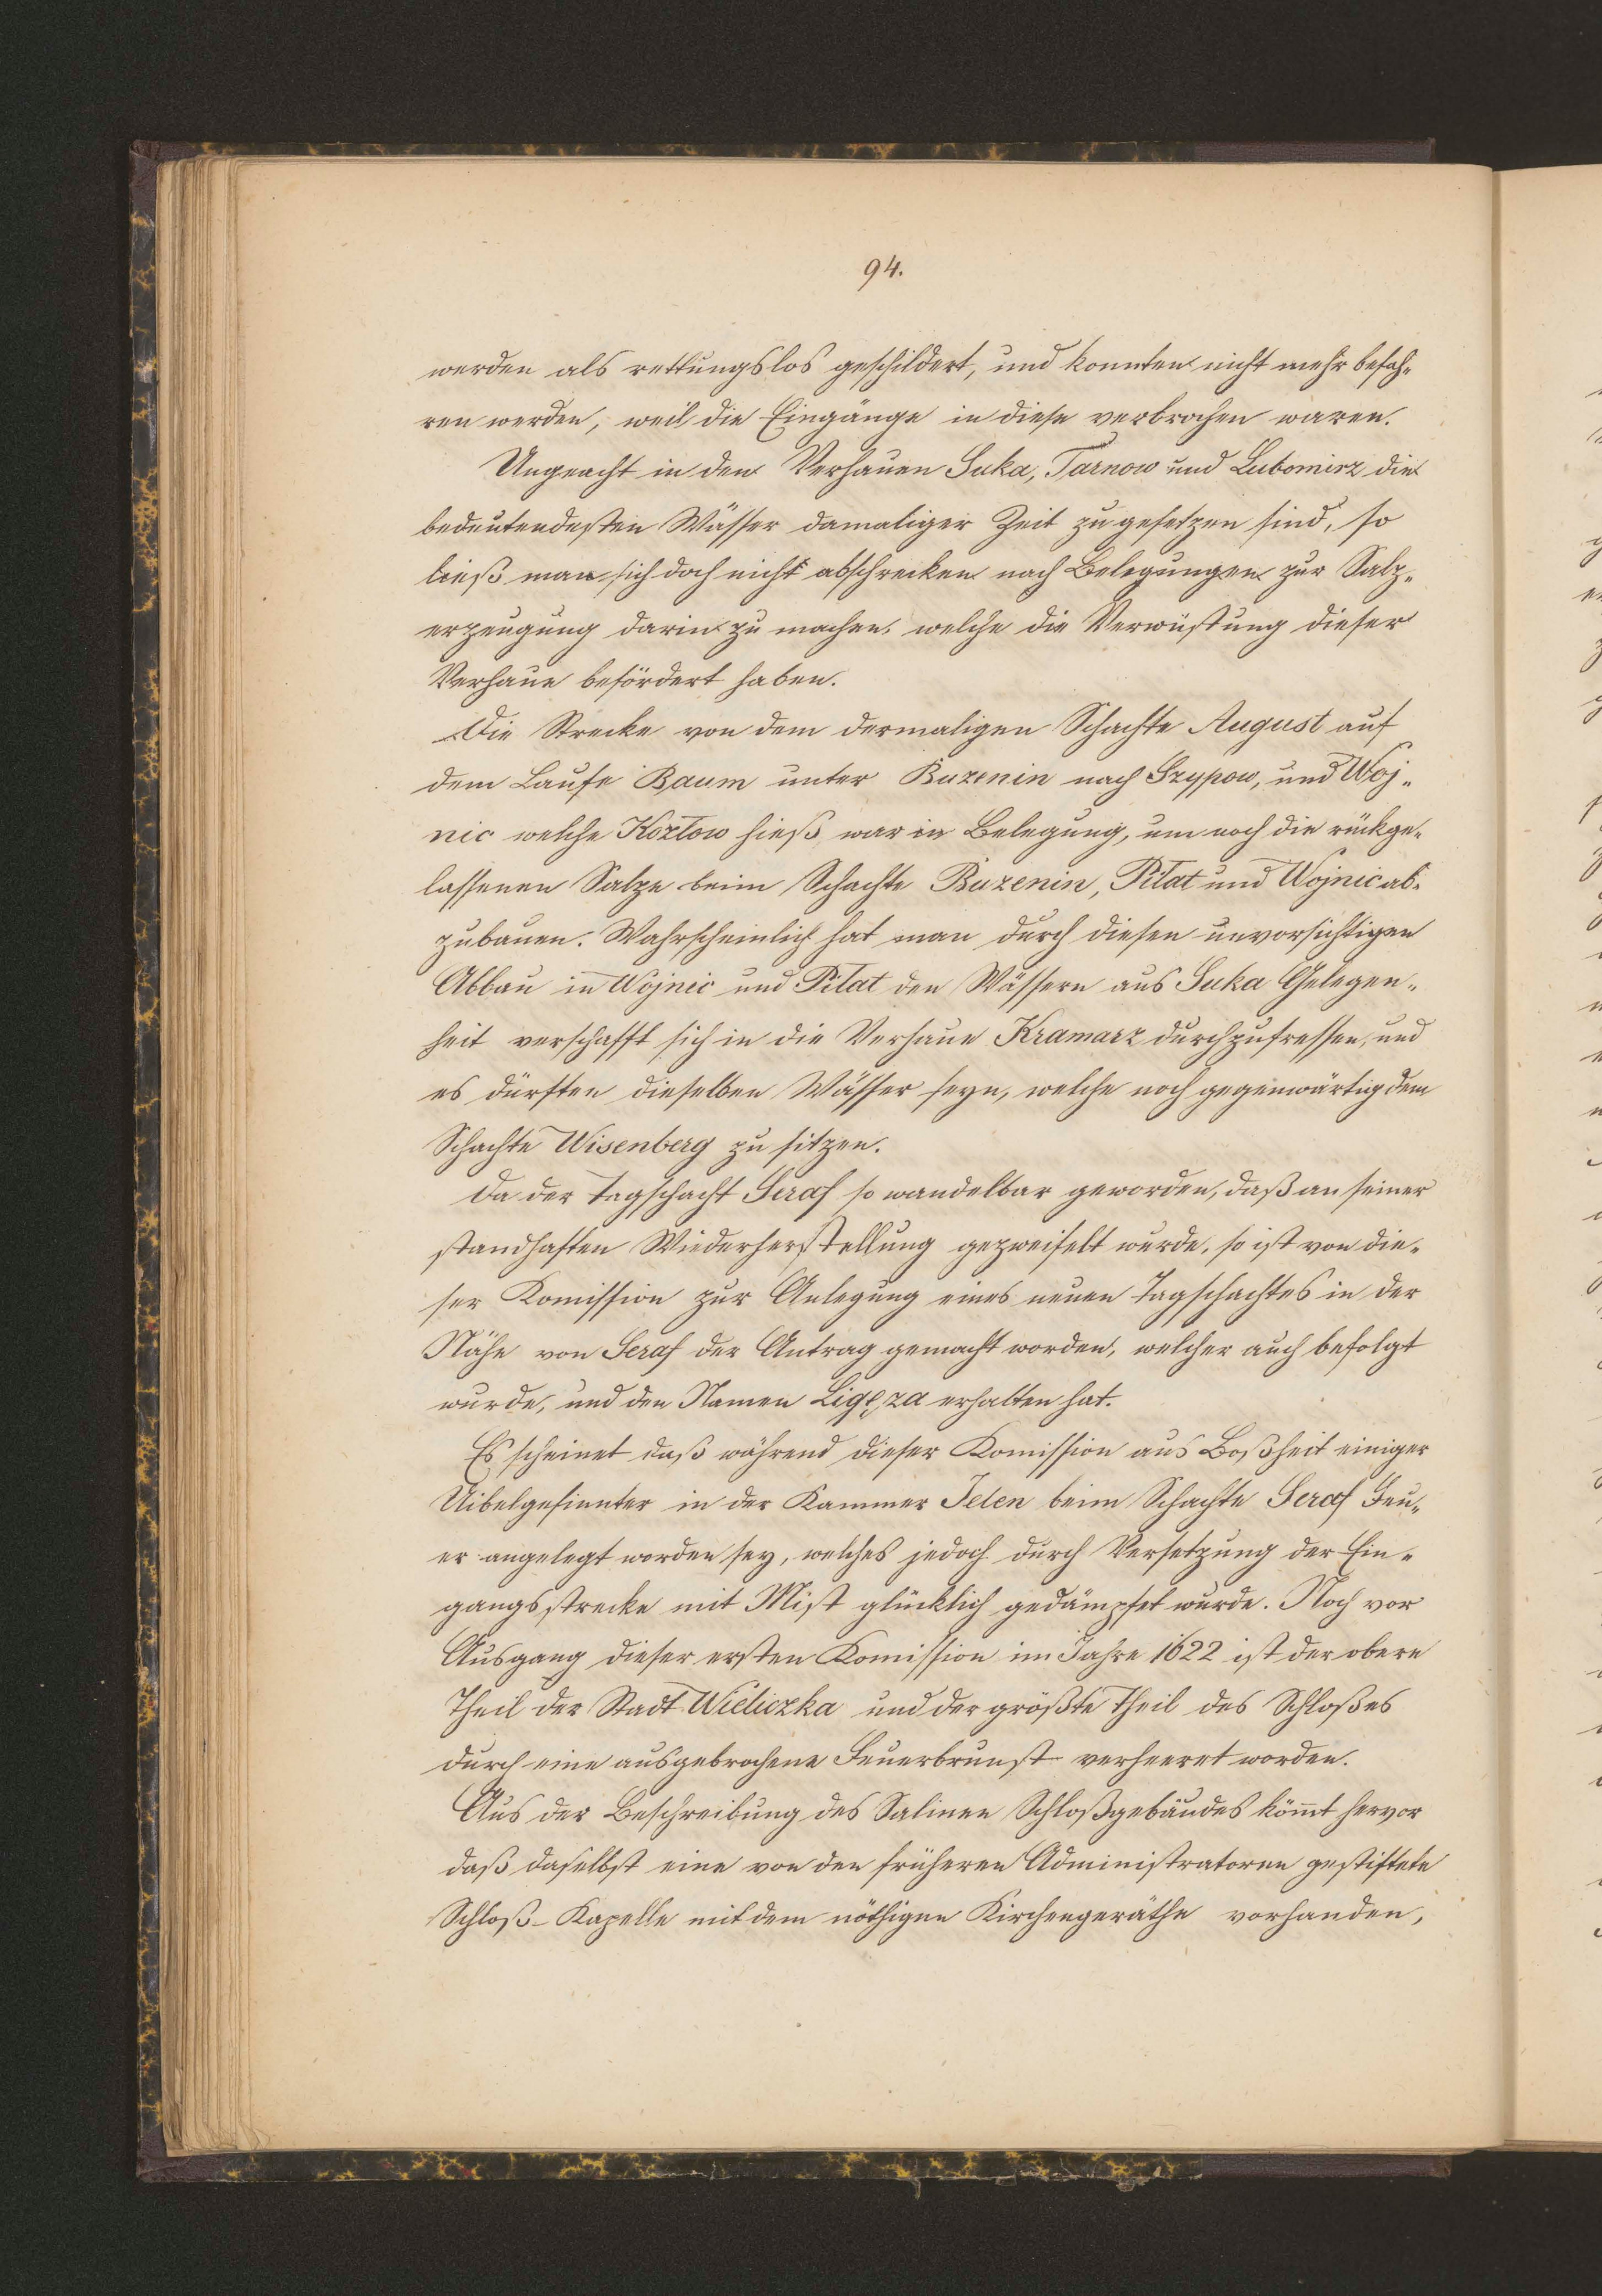 94.
werden als rettungslos geschildert, und konnten nicht mehr befah-
ren werden, weil die Eingänge in diese verbrochen waren.
Ungeacht in den Verhauen Suka, Tarnow und Lubomirz die
bedeutendesten Wässer damaliger Zeit zugesetzen sind, so
ließ man sich doch nicht abschrecken noch Belegungen zur Salz-
erzeugung darin zu machen, welche die Verwüstung dieser
Verhaue befördert haben.
Die Strecke von dem dermaligen Schachte August auf
dem Laufe Baum unter Buzenin nach Szypow, und Woj-
nic welche Kozłow hieß, war in Belegung, um noch die rückge-
lassenen Salze beim Schachte Buzenin, Piłat und Wojnic ab-
zubauen. Wahrscheinlich hat man durch diesen unvorsichtigen
Abbau in Wojnic und Piłat den Wässern aus Suka Gelegen-
heit verschafft sich in die Verhaue Kramarz durchzufressen, und
es dürften dieselben Wässer seyn, welche noch gegenwärtig dem
Schachte Wisenberg zu sitzen.
Da der Tagschacht Seraf so wandelbar geworden, daß an seiner
standhaften Wiederherstellung gezweifelt wurde, so ist von die-
ser Komission zur Anlegung eines neuen Tagschachtes in der
Nähe von Seraf der Antrag gemacht worden, welcher auch befolgt
wurde, und den Namen Ligęza erhalten hat.
Es scheinet daß während dieser Komission aus Boßheit einiger
Uibelgesinnter in der Kammer Jelen beim Schachte Seraf Feu-
er angelegt worden sey, welches jedoch durch Versetzung der Ein-
gangsstrecke mit Mist glücklich gedämpfet wurde. Noch vor
Ausgang dieser ersten Komission im Jahre 1622 ist der obere
Theil der Stadt Wieliczka und der größte Theil des Schloßes
durch eine ausgebrochene Feuerbrunst verheeret worden.
Aus der Beschreibung des Salinen Schloßgebäudes kömt hervor
daß daselbst eine von den früheren Administratoren gestiftete
Schloß-Kapelle mit dem nöthigen Kirchengeräthe vorhanden,